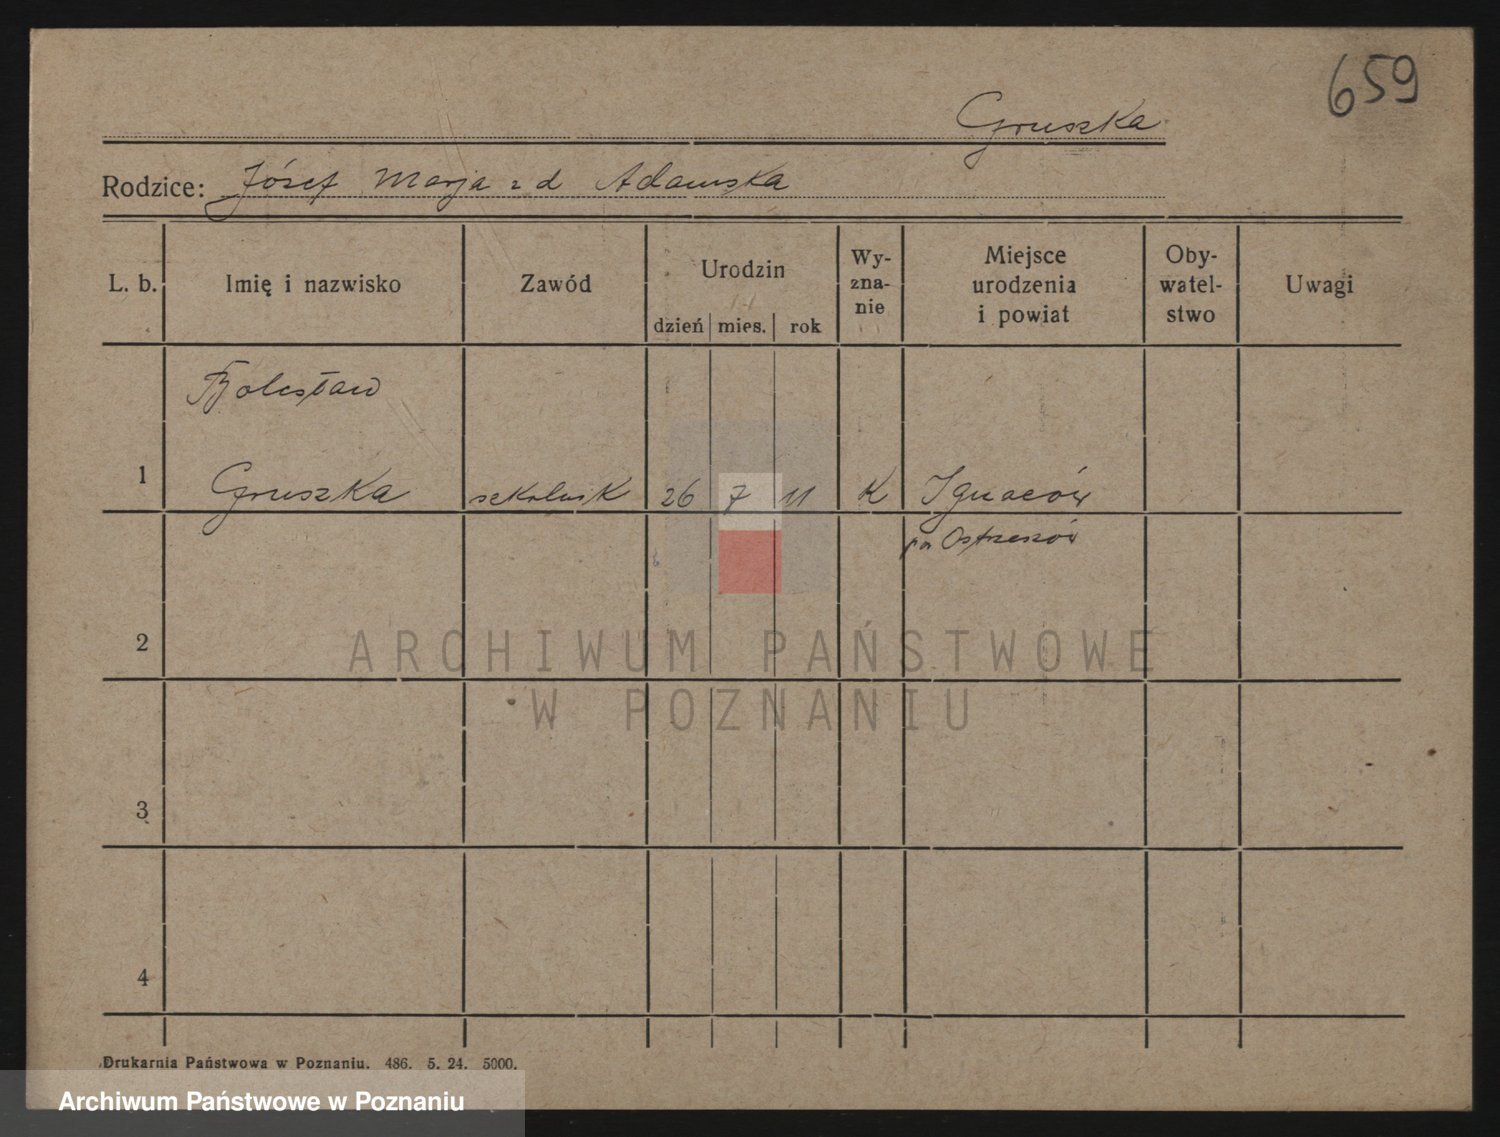 659
Gruszka
Rodzice: Józef Marja z d Adamska
L. b. Imię i nazwisko Zawód Urodzin dzień mies. rok Wy-zna-nie Miejsce urodzenia i powiat Oby-watel-stwo Uwagi
Bolesław
1 Gruszka szkolnik 26 7 11 K Ignaców
pow Ostrzeszów
2
ARCHIWUM PAŃSTWOWE
W POZNANIU
3
4
Drukarnia Państwowa w Poznaniu. 486. 5. 24. 5000.
Archiwum Państwowe w Poznaniu